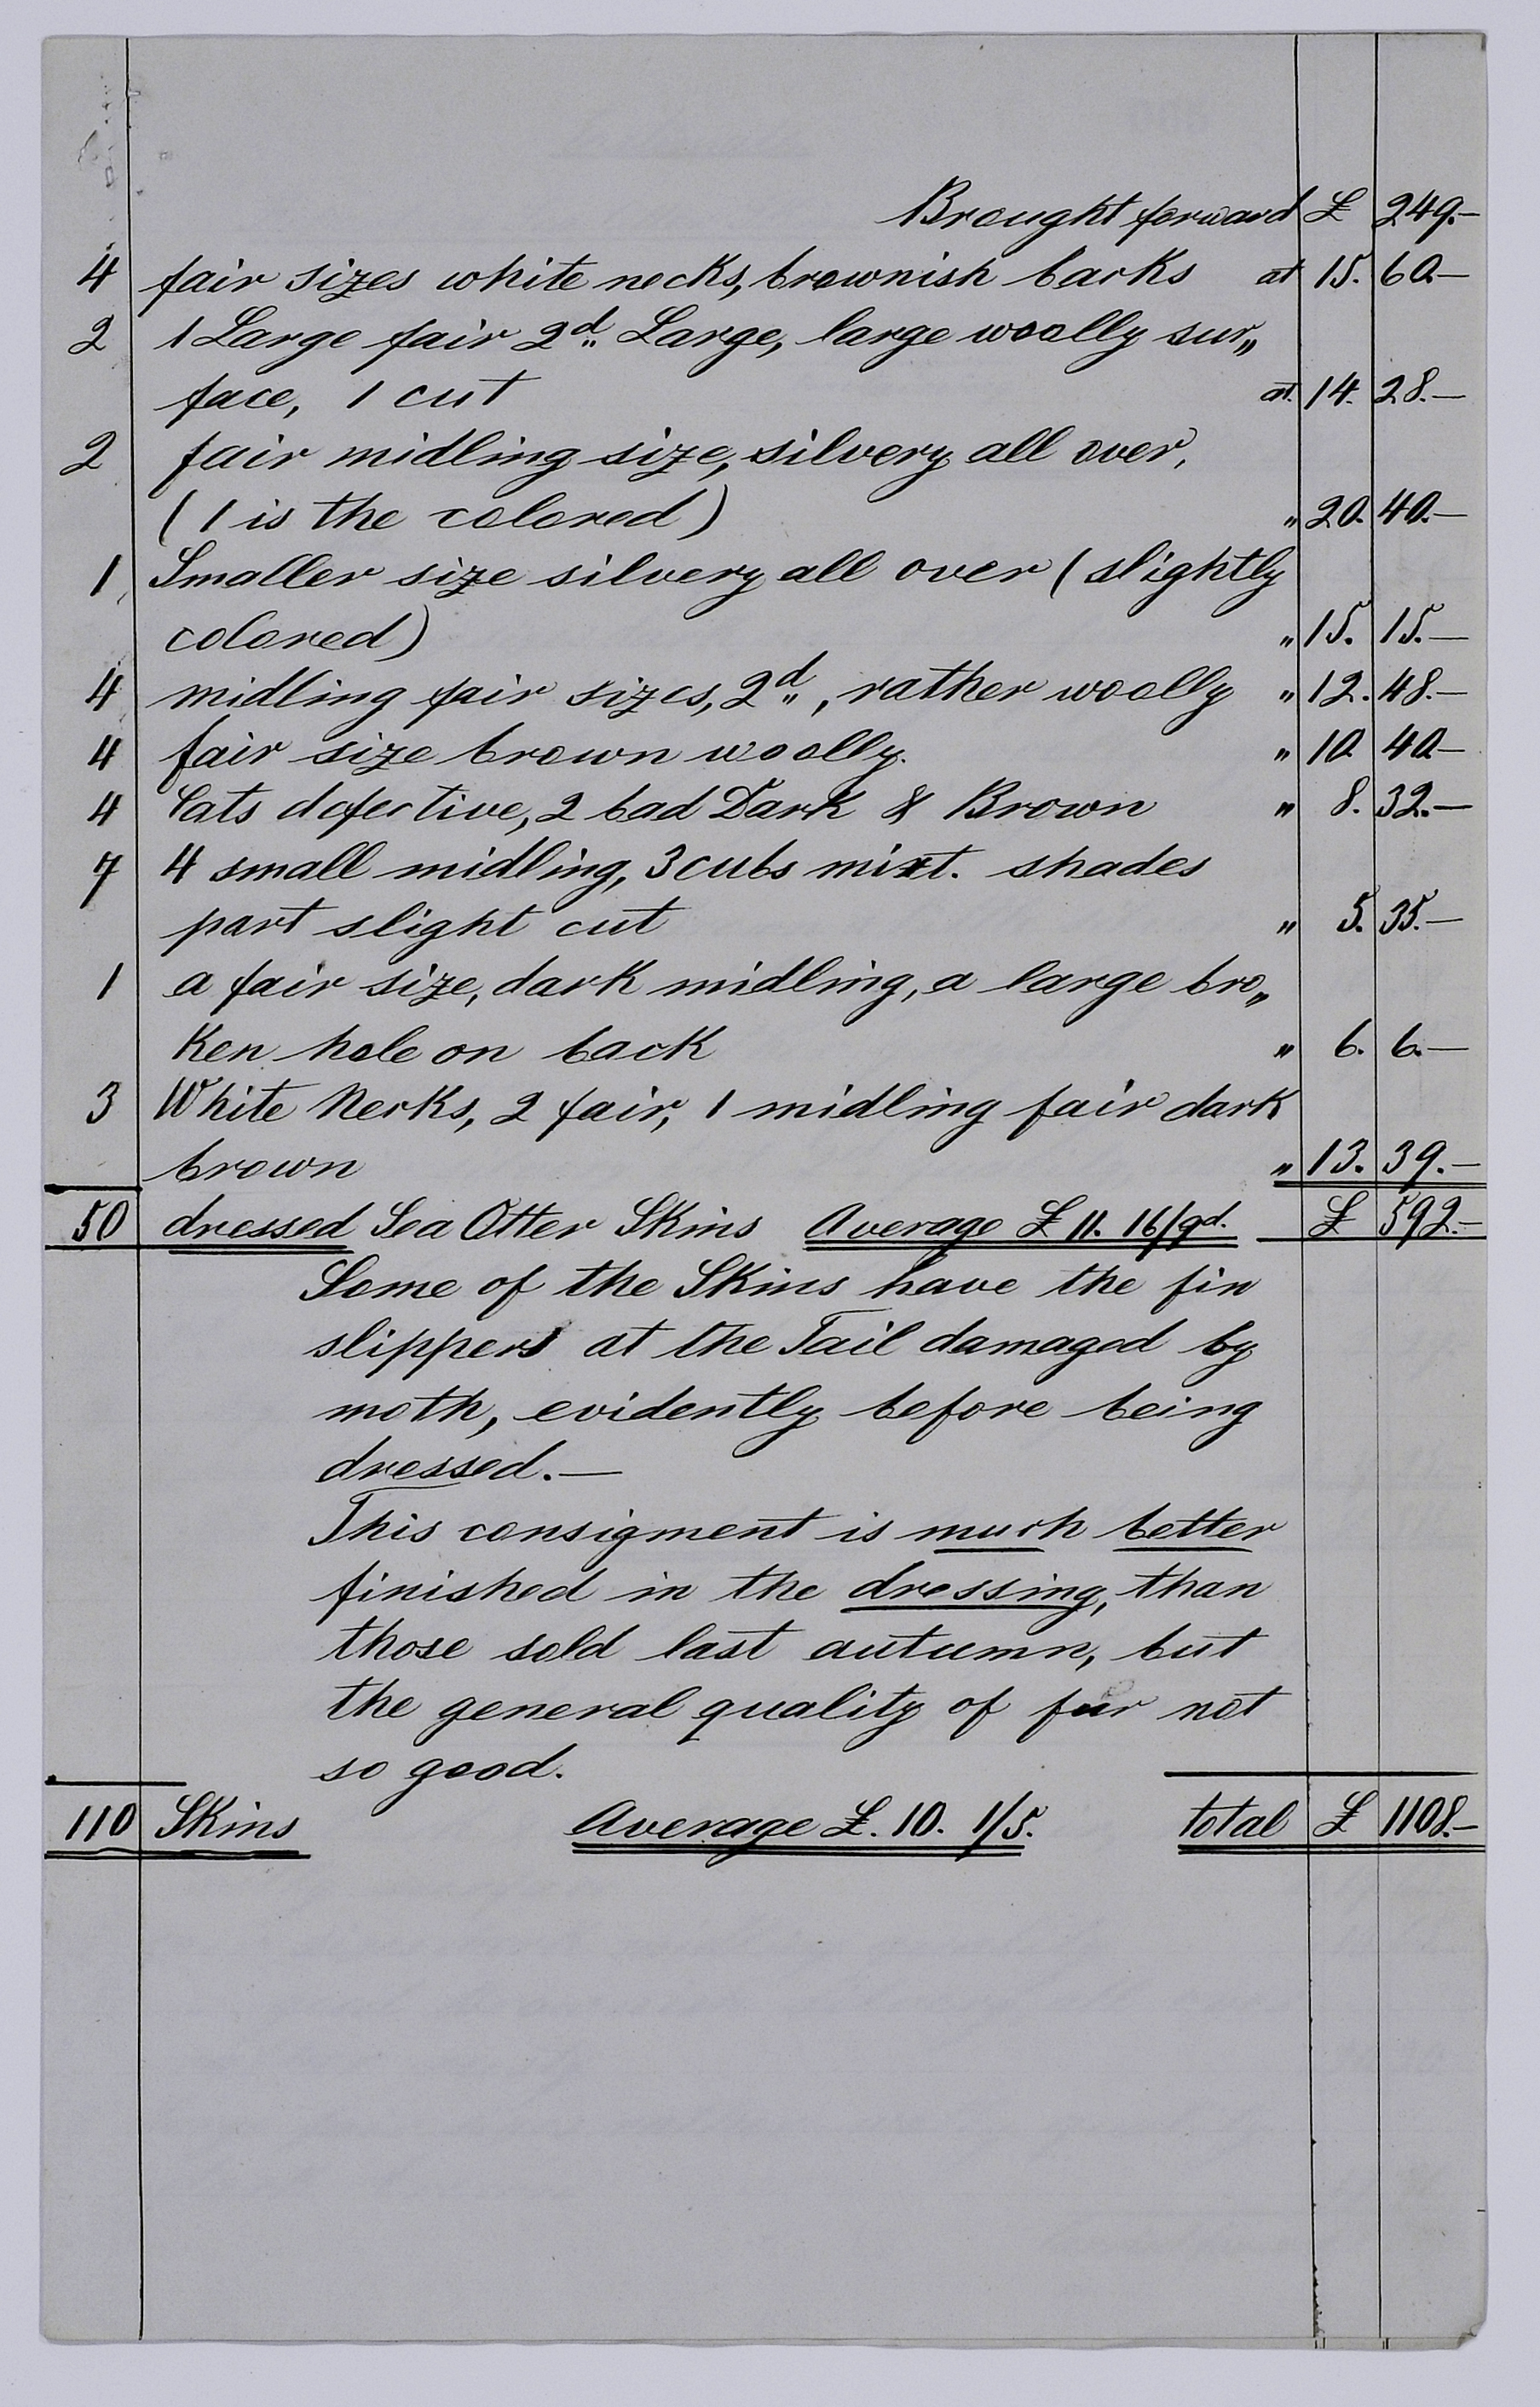 Brought forward £ 249.—
4 fair sizes white necks, brownish backs at 15. 60.—
2 1 Large fair 2d.. Large, large woolly sur„
face, 1 cut at 14. 28.—
2 fair midling size, silvery all over,
(1 is the colored) „ 20. 40.—
1 Smaller size silvery all over (slightly
colored) „ 15. 15.—
4 midling fair sizes, 2d.., rather woolly „ 12. 48.—
4 fair size brown woolly. „ 10 40—
4 Cats defective, 2 bad Dark & Brown „ 8. 32.—
7 4 small midling, 3 cubs mixt. shades
part slight cut „ 5. 35.—
1 a fair size, dark midling, a large bro„
ken hole on back „ 6. 6.—
3 White Necks, 2 fair, 1 midling fair dark
brown „ 13. 39.—
50 dressed Sea Otter Skins Average £ 11. 16/9d. £ 592.—
Some of the Skins have the fin
slippers at the Tail damaged by
moth, evidently before being
dressed.—
This consigment is much better
finished in the dressing, than
those sold last autumn, but
the general quality of fur not
so good.
110 Skins Average £. 10. 1/5. total £ 1108.—